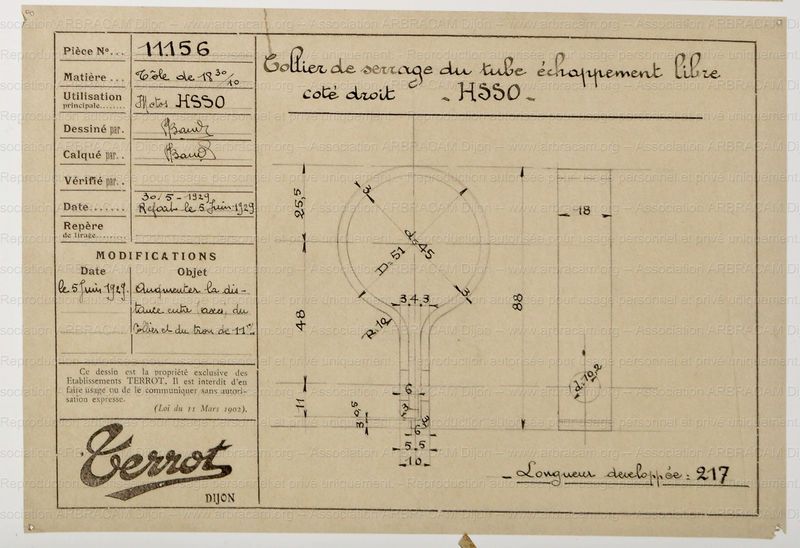 Pièce N°... 11156
Matière... Tôle de 18 30/10
Utilisation
principale........ Motos HSSO
Dessiné par.
Calqué par..
Vérifié par..
30/5-1929
Date....... Refait le 5 Juin 1929
Repère
de tirage.........
MODIFICATIONS
Date Objet
le 5 Juin 1929. Augmenter la dis-
tance entre l'axe du
Collier et du trou de 11
Ce dessin est la propriété exclusive des
Etablissements TERROT. Il est interdit d'en
faire usage ou de le communiquer sans autori-
sation expresse.
(Loi du 11 Mars 1902).
Terrot
DIJON
Collier de serrage du tube échappement libre
coté droit - HSSO -
25,5
48
11
3
d=45
D=51
3
3.4.3
R=10
6
3
6
5.5
10
88
18
d=10.2
- Longueur developpée: 217
Reproduction autorisée pour usage personnel et privé uniquement
Association ARBRACAM Dijon – www.arbracam.org